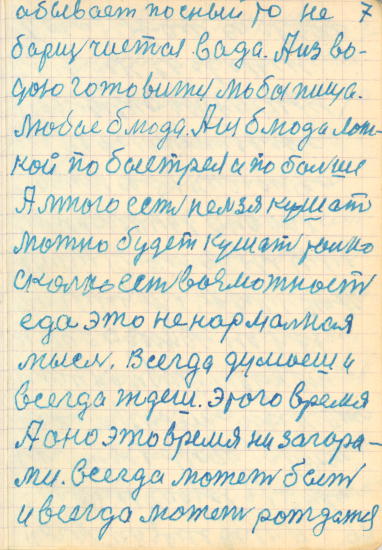 абывает посный То не 7
барщ чистая вада. А из во-
дою готовитя мобы пища.
любое блюда. А из блюда лож-
кой по быстрея и по болше
А много есть нелзя кушат
можно будет кушат только
сколко есть возможност
еда это не нармалная
мысл. Всегда думаеш и
всегда ждеш. Этого время
А оно это время ни загора-
ми. всегда может быть
и всегда может рождатя